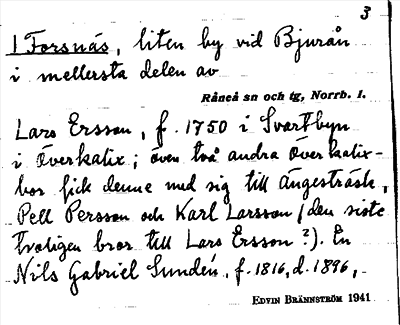 3
I Forsnäs, liten by vid Bjurån
i mellersta delen av
Råneå sn och tg, Norrb. l.
Lars Ersson, f. 1750 i Svartbyn
i Överkalix; även två andra Överkalix-
bor fick denne med sig till Ängesträsk,
Pell Persson och Karl Larsson (den siste
troligen bror till Lars Ersson?). En
Nils Gabriel Sundén, f. 1816, d. 1896,
EDVIN BRÄNNSTRÖM 1941